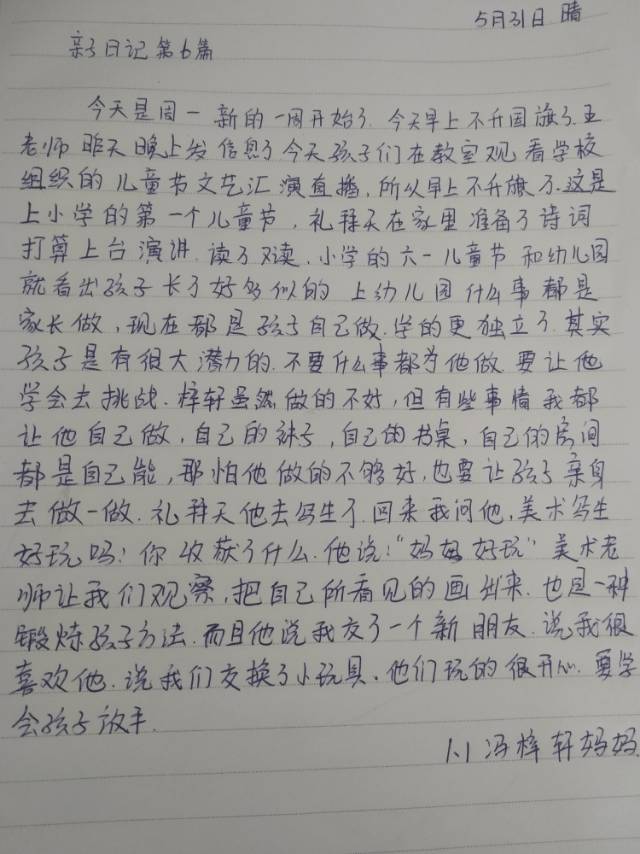 5月31日 晴
亲子日记第6篇
今天是周一 新的一周开始了.今天早上不升国旗了.王
老师昨天晚上发信息了今天孩子们在教室观看学校
组织的儿童节文艺汇演直播,所以早上不升旗了.这是
上小学的第一个儿童节,礼拜天在家里准备了诗词
打算上台演讲.读了又读.小学的六一儿童节和幼儿园
就看出孩子长了好多似的 上幼儿园什么事都是
家长做,现在都是孩子自己做.学的更独立了.其实
孩子是有很大潜力的.不要什么事都为他做.要让他
学会去挑战.梓轩虽然做的不好,但有些事情我都
让他自己做,自己的袜子,自己的书桌,自己的房间
都是自己能,那怕他做的不够好,也要让孩子亲身
去做一做.礼拜天他去写生了.回来我问他,美术写生
好玩吗!你收获了什么.他说:“妈妈好玩”美术老
师让我们观察,把自己所看见的画出来.也是一种
锻炼孩子方法.而且他说我交了一个新朋友.说我很
喜欢他.说我们交换了小玩具.他们玩的很开心.要学
会孩子放手.
1.1 冯梓轩妈妈